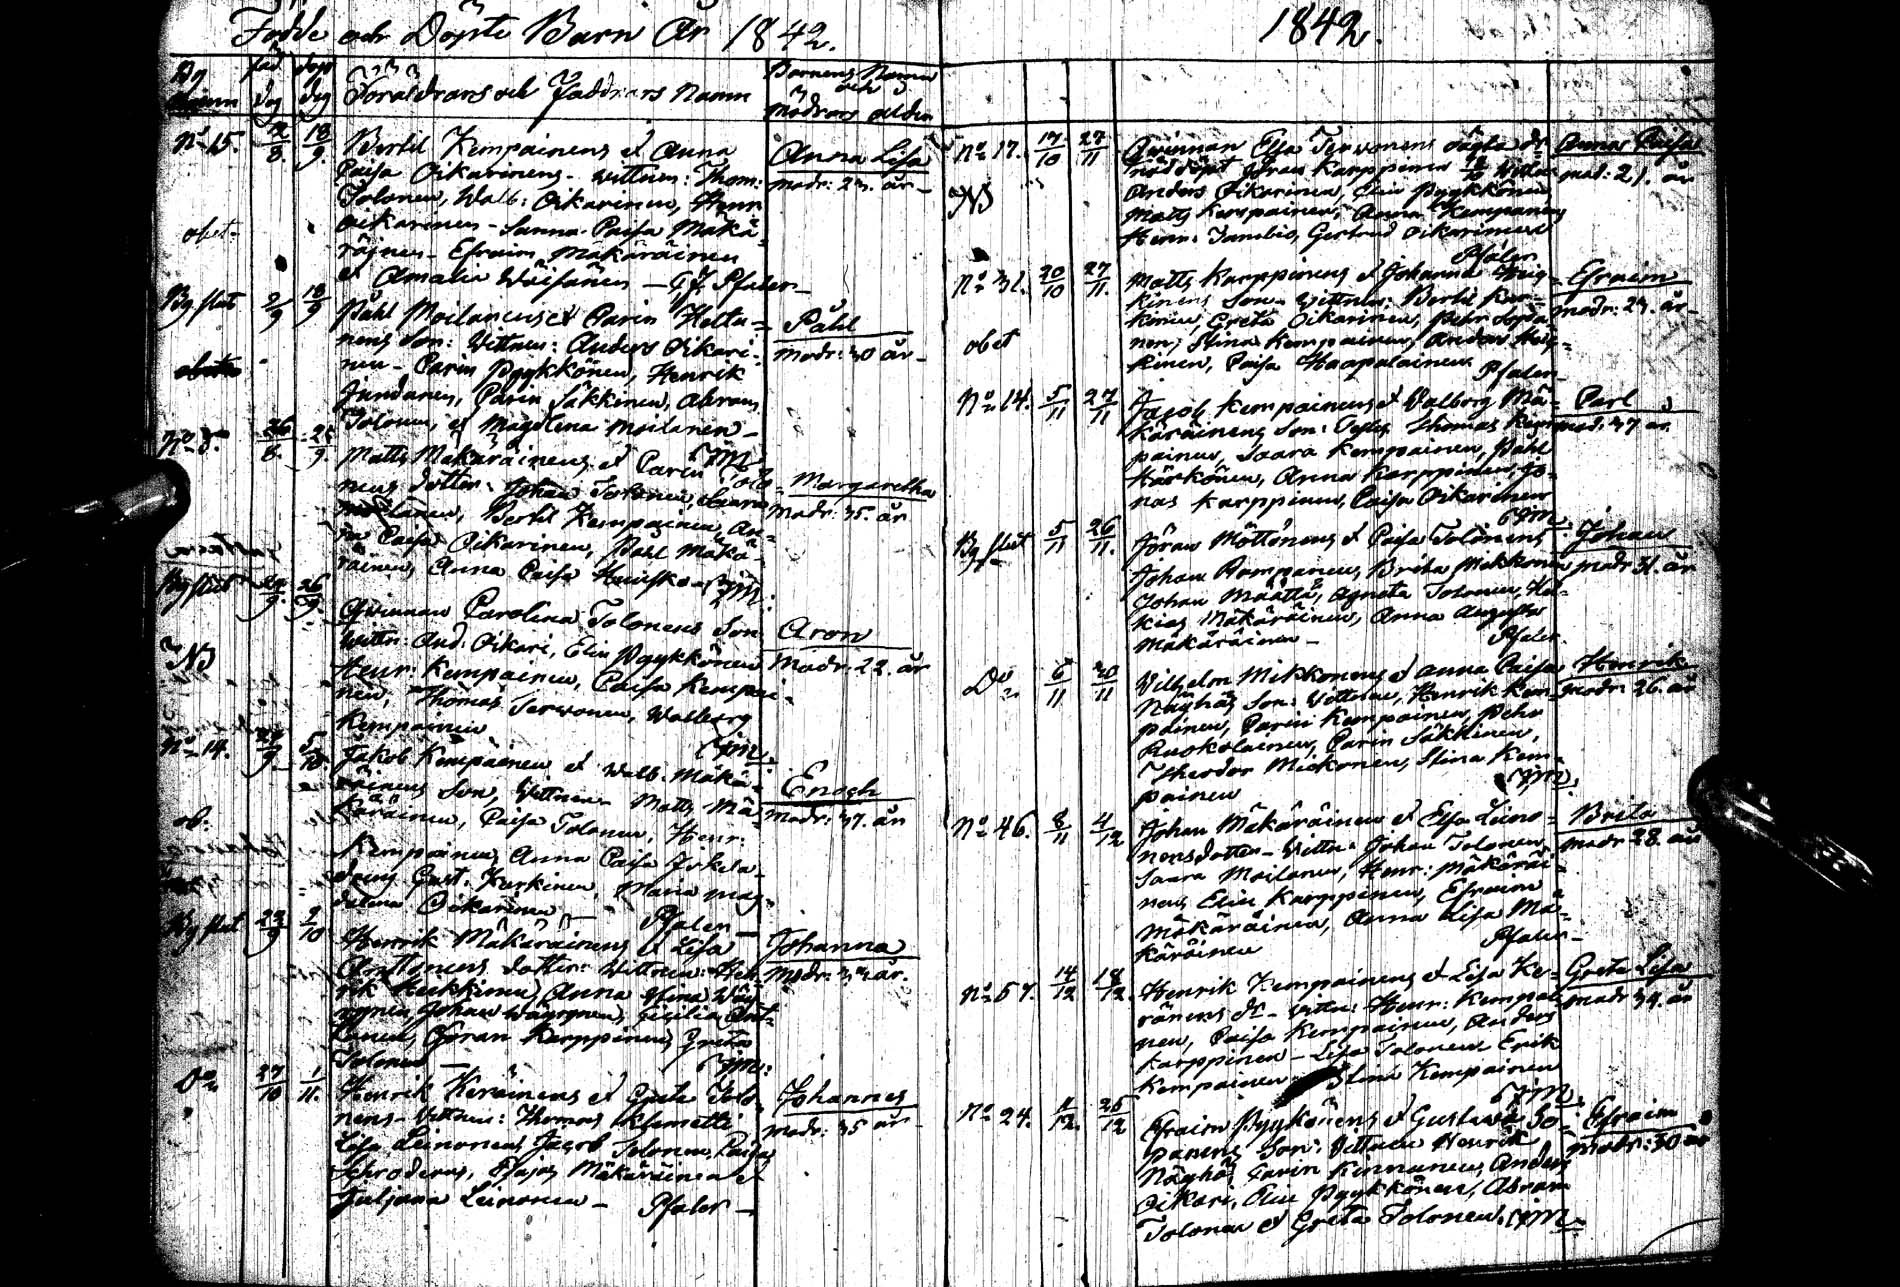 Födde och Döpte Barn År 1842.
By
född dag
döpt dag
Föräldrars och Faddrars Namn
Barnens Namn
och
Modrars ålder
No 15. 18/9. Bertil Kempainens et Anna
Caisa Oikarinens. Wittnen: Thom:
Tolonen, Walb: Oikarinen, Henr:
Oikarinen - Sanna Caisa Mäkä-
räinen - Efraim Mäkäräinen
et Amalia Wäisänen - Pfaler -
Anna Lisa
modr: år -
obet:
By slut 2/9 18/9 Påhl Moilanens et Carin Hettu-
nens Son: Wittnen: Anders Oikari-
nen - Carin Pyykkönen, Henrik
Jundanen, Carin Säkkinen, Abram
Tolonen, et Magdlena Moilanen -
Påhl
modr: 30 år -
No 5. 26/8. 25/9. Matts Mäkäräinens et Carin Tolo-
nens dotter. Johan Tolonen, Saara
Moilanen, Bertil Kempainen, An-
na Caisa Oikarinen, Påhl Mäkä-
räinen, Anna Caisa
Margaretha
Modr: 35. år
By slut 24/9. 26/9. Qvinnan Carolina Tolonens Son
Wittn: And: Oikari, Elin Pyykkönen
Henr: Kempainen, Caisa Kempai-
nen, Thomas Terwonen, Walborg
Kempainen
Aron
Modr: 22. år
No 14. 5/10 Jakob Kempainen et Walb: Mäkä-
räinens Son, Wittnen - Matts Mä-
käräinen, Caisa Tolonen, Henr:
Kempainen, Anna Caisa Jokela-
dreng Gust: Kurkinen, Maria Mag-
dalena Oikarinen - Pfaler -
Enoch
Modr: 37. år
ob:
By slut 23/9 2/10 Henrik Mäkäräinens et Lisa
Anttonens dotter: Wittnen: Hen-
rik Heikkinen, Anna Stina Wäy-
rynen, Johan Wäyrynen, Cecilia Ant-
tonen, Göran Karppinen, Greta
Tolonen -
Johanna
Modr: år.
Do 27/10 1/11. Henrik Keräinens et Greta Tolo-
nens - Wittnen: Thomas Klemetti
Lisa Leinonen, Jacob Tolonen, Caisa
Schroderus, Esajas Mäkäräinen et
Juliana Leinonen - Pfaler -
Johannes
modr: 35 år -
1842.
No 17. 17/10 27/11 Qvinnan Elsa Terwonens oägta dr
nöddöpt Göran Karppinen Wittn:
Anders Oikarinen, Elin Pyykkönen,
Matts Kempainen, Anna Kempainen
Henr: Jambio, Gertrud Oikarinen
Pfaler
Anna Caisa
mod: 21. år
No 31. 20/10 27/11. Matts Karppinens et Johanna Hei-
kinens Son - Wittnen: Bertil Kar-
konen, Greta Oikarinen, Pehr Sopa-
nen, Stina Kempainen, Anders Hei-
kinen, Caisa Haapalainen Pfaler -
Efraim
modr: år -
obet
No 14. 5/11 27/11 Jacob Kempainens et Valborg Mä-
käräinens Son: Testes Thomas Kem-
painen, Saara Kempainen, Påhl
Härkönen, Anna Karppinen, Jo-
nas Karppinen, Caisa Oikarinen
Carl
mod: 37 år
By slut 5/11 26/11. Göran Möttönens et Caisa Tolonens
Johan Rompanen, Brita Mikkonen
Johan Määttä, Agneta Tolonen, He-
kias Mäkäräinen, Anna Augusta
Mäkäräinen - Pfaler.
Johan
modr 31. år
Do 6/11 20/11 Vilhelm Mikkonens et Anna Caisa
Näyhäs Son: Wittnen, Henrik Kem-
painen, Carin Kempainen, Pehr
Ruokolainen, Carin Säkkinen,
Theodor Mickonen, Stina Kem-
painen
Henrik
modr: 26. år
No 46. 8/11 4/12 Johan Mäkäräinen et Elsa Leino-
nens dotter - Wittn: Johan Tolonen,
Saara Moilanen, Henr: Mäkäräi-
nen, Elin Karppinen, Efraim
Mäkäräinen, Anna Lisa Mä-
käräinen Pfaler -
Brita
modr 28. år
No 57. 14/12 18/12. Henrik Kempainens et Lisa Ke-
ränens dr - Wittn: Henr: Kempai-
nen, Caisa Kempainen, Anders
Karppinen - Lisa Tolonen Erik
Kempainen - Stina Kempainen
Greta Lisa
modr 34. år
No 24. 11/12. 26/12 Efraim Pyykönens et Gustava So-
panens Son: Vittnen Henrik
Näyhäs Carin Kinnunen, Anders
Oikari, Elin Pyykkönen, Abram
Tolonen et Greta Tolonen.
Efraim
modr: 30 år